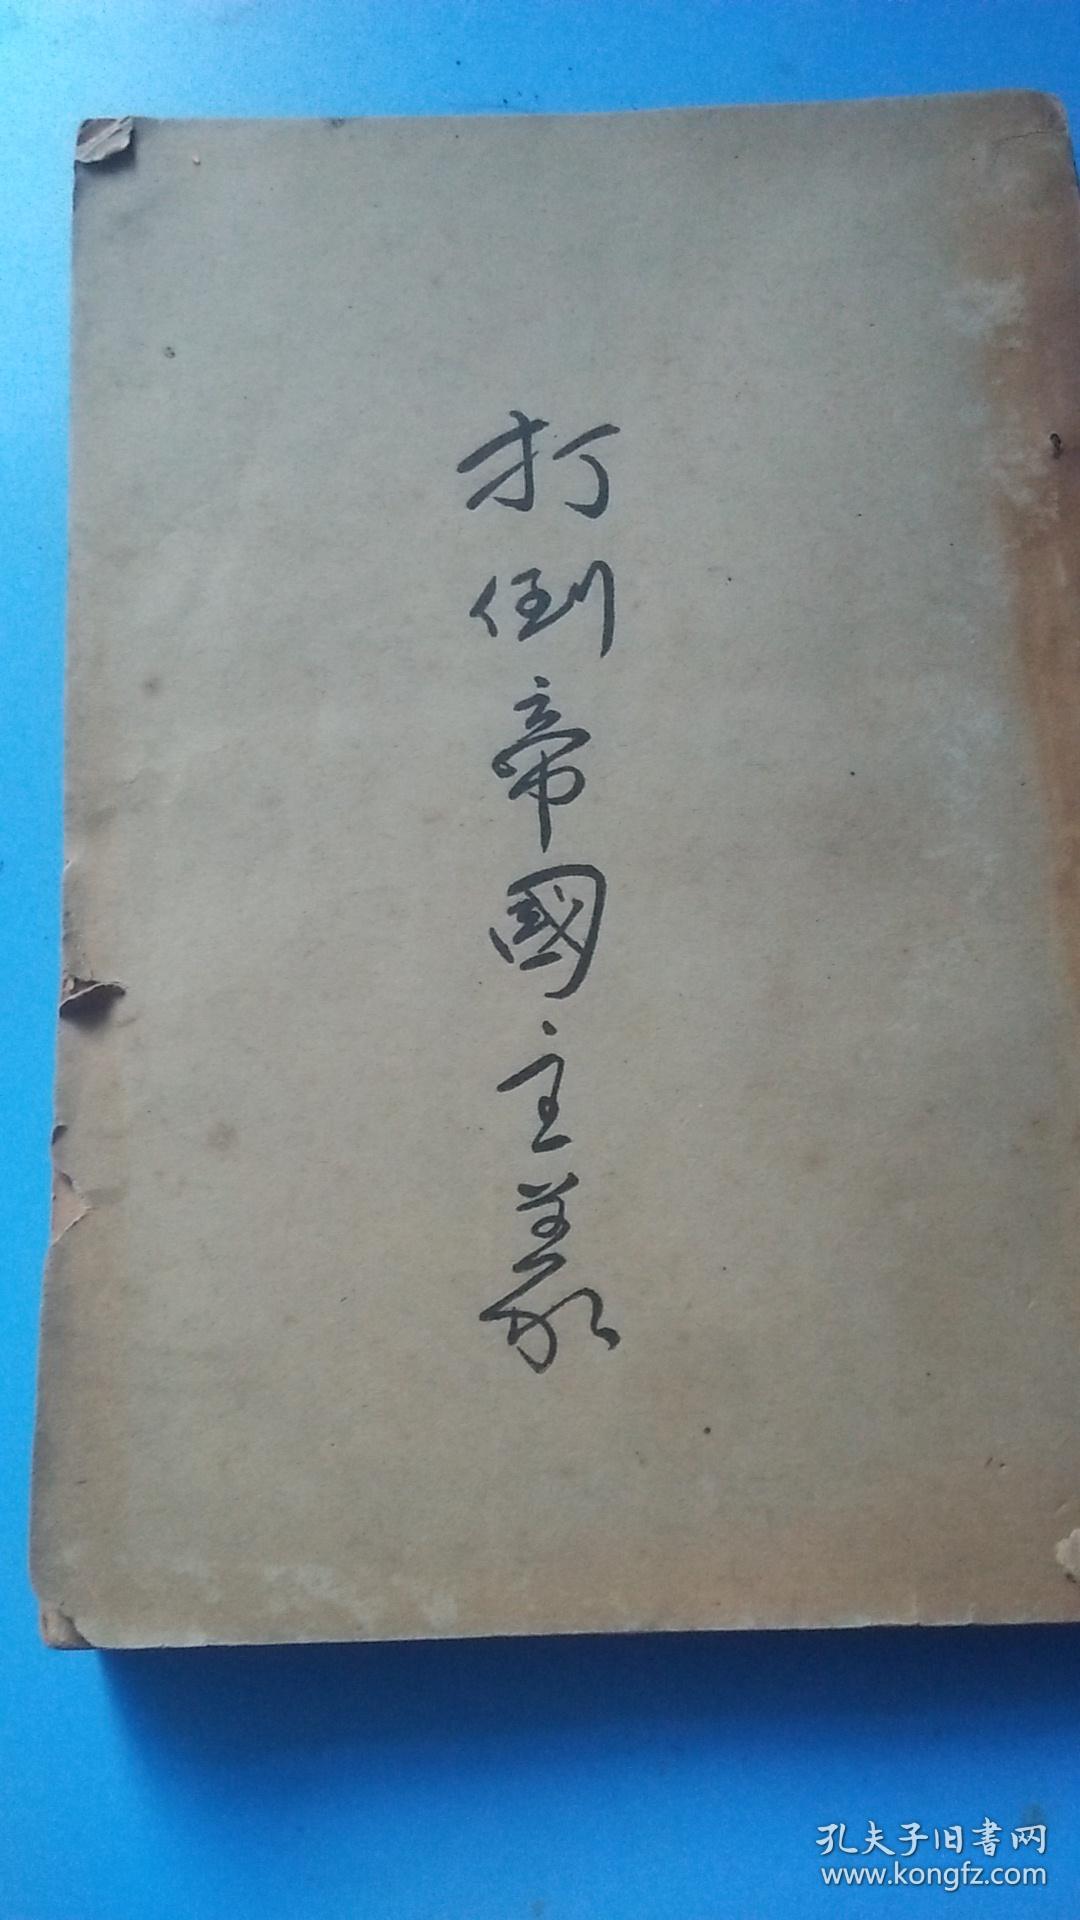 打倒帝國主義
孔夫子旧書网
www.kongfz.com